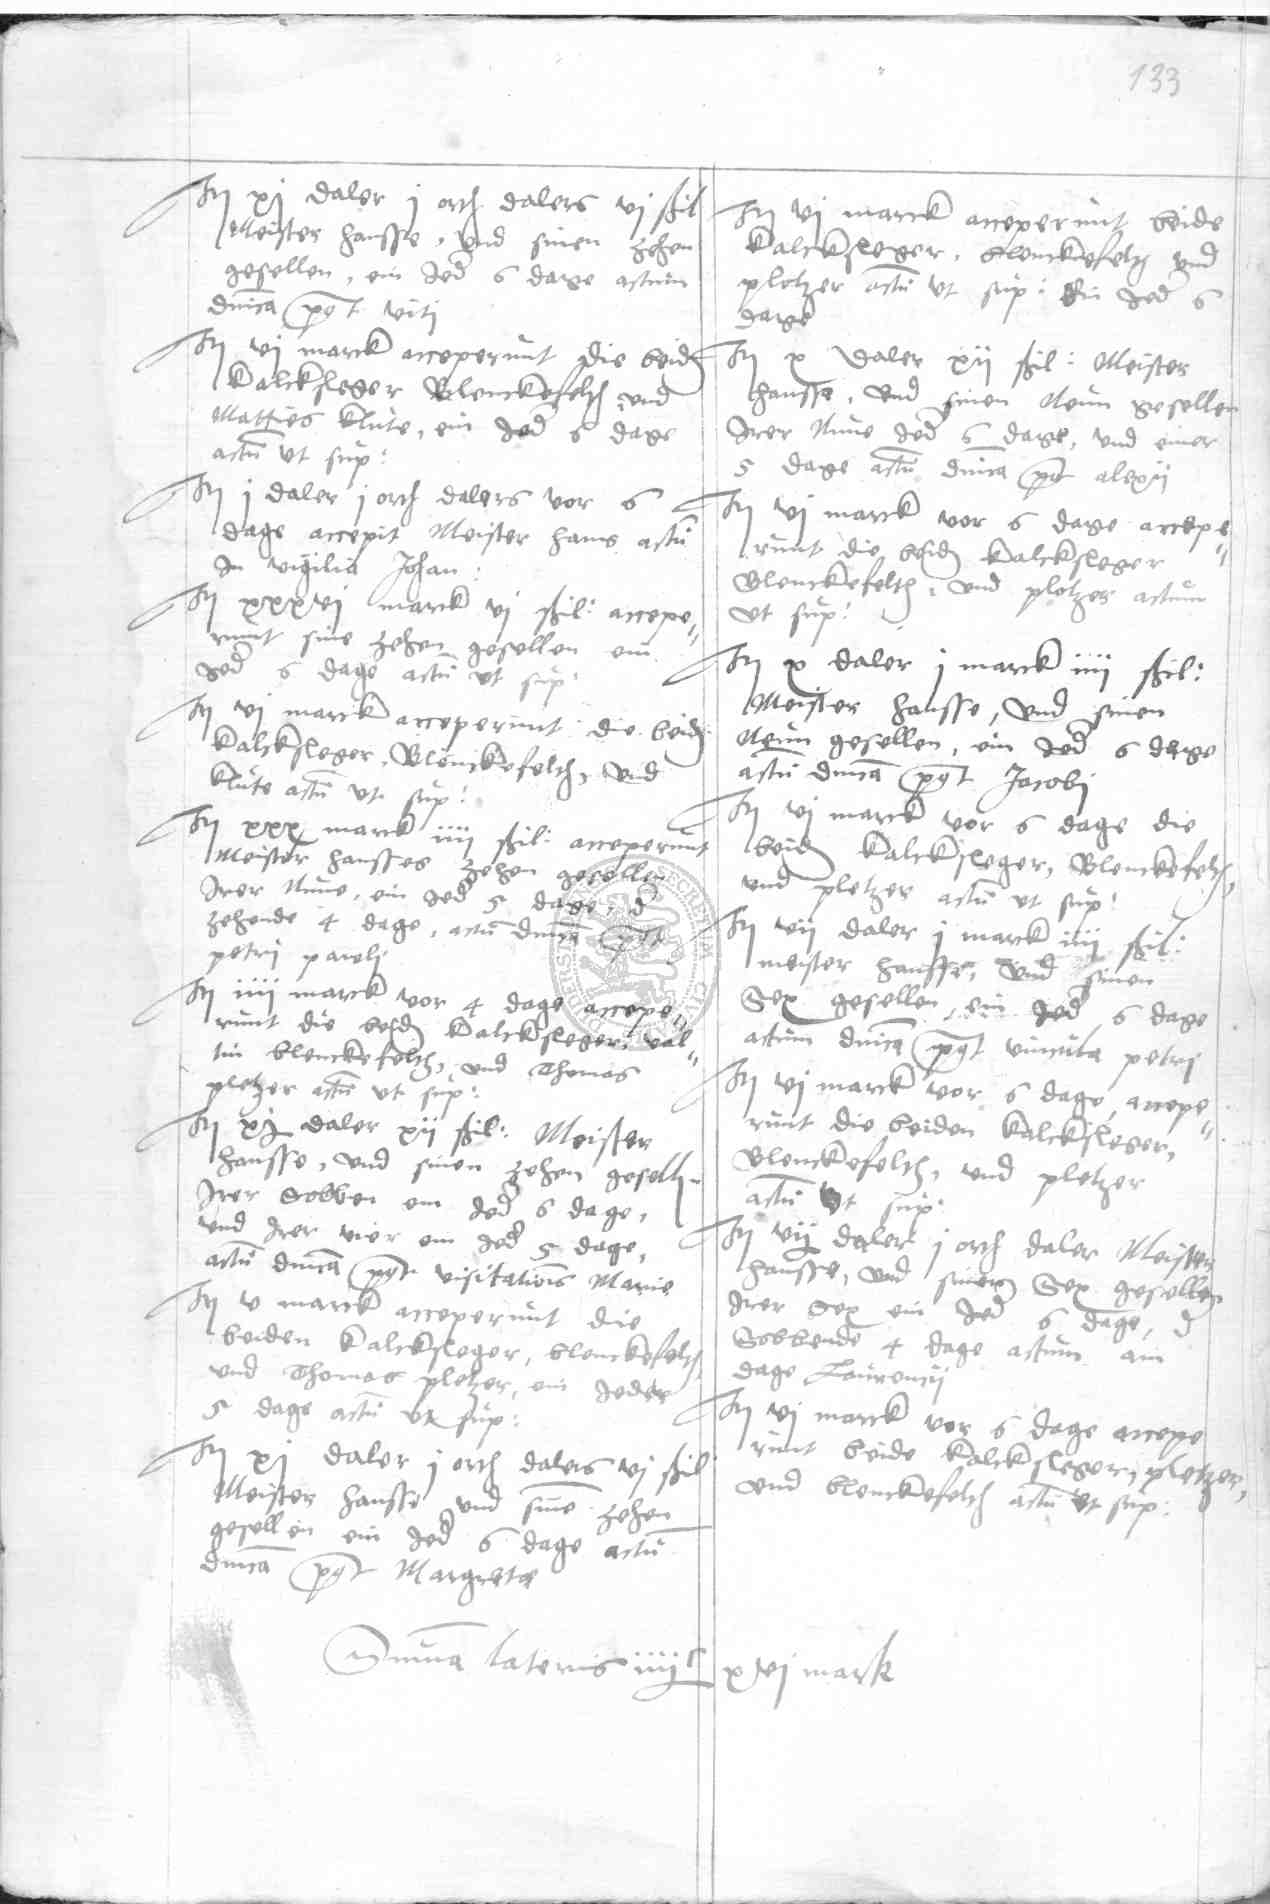 133
It xj daler j orth dalers vj ßil
Meister hansse, vnd sinen zehen
gesellen, ein Jed 6 dage actum
dnica pꝰt viti
It vj marck acceperunt die beid
kalcksleger Blenckefelth vnd
Matties klute, ein Jed 6 dage
actu vt sup:
It j daler j orth dalers vor 6
dage accepit Meister hans actu
In vigilia Johan:
It xxxvj marck vj ßil: accepe„
runt sine zehen gesellen ein
Jed 6 dage actu vt sup:
It vj marck acceperunt die beid
kalcksleger, Blenckefelth, vnd
klute actu vt sup:
It xxx marck iiij ßil: acceperunt
Meister hansses zehen gesellen
Jrer Nune, ein Jed 5 dage, d
zehende 4 dage, actu dnica pꝰt
petri pauli
It iiij marck vor 4 dage accepe
runt die beid kalcksleger, val„
tin blenckefelth, vnd Thomas
pletzer actu vt sup:
It xj daler xij ßil: Meister
hansse, vnd sinen zehen gesell
Jrer Sobben ein Jed 6 dage,
vnd Jrer vier ein Jed 5 dage,
actu dnica pꝰt visitatiois Marie
It v marck acceperunt die
beiden kalcksleger, blenckefelth
vnd Thomas pletzer, ein Jeder
5 dage actu vt sup:
It xj daler j orth dalers vj ßil
Meister hansse vnd sine zehen
gesellen ein Jed 6 dage actu
dnica pꝰt Margrete
It vj marck acceperunt beide
kalcksleger, blenckefelth vnd
pletzer actu vt sup: Ein Jed 6
dage
It x daler xij ßil: Meister
hansse, vnd sinen Neun gesellen
Jrer Nune Jed 6 dage, vnd einer
5 dage actu dnica pꝰt alexij
It vj marck vor 6 dage accepe„
runt die beid kalcksleger
Blenckefelth, vnd pletzer actum
vt sup:
It x daler j marck iiij ßil:
Meister hansse, vnd sinen
Neun gesellen, ein Jed 6 dage
actu dnica pꝰt Jacobj
It vj marck vor 6 dage die
beid kalcksleger, Blenckefelth,
vnd pletzer actu vt sup:
It vij daler j marck iiij ßil:
meister hansse, vnd sinen
Sex gesellen, ein Jed 6 dage
actum dnica pꝰt vincula petrj
It vj marck vor 6 dage, accepe„
runt die beiden kalcksleger,
Blenckefelth, vnd pletzer
actu vt sup:
It vij daler j orth daler Meister
hansse, vnd sinen Sex gesellen
Jrer Sex ein Jed 6 dage, d
Sobbende 4 dage actum am
dage Laurencij
It vj marck vor 6 dage accepe
runt beide kalcksleger, pletzer,
vnd blenckefelth actu vt sup:
Suma lateris iiijC xvj mark